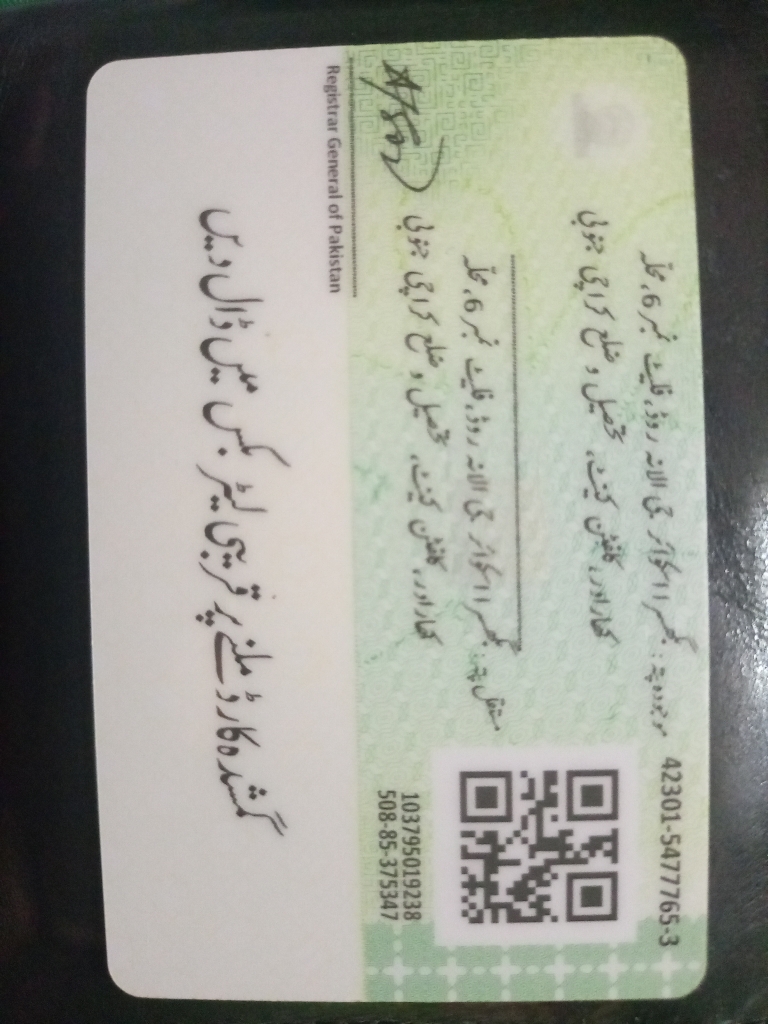 42301-5477765-3
موجودہ پتہ: گھر 11 سکوائر جی الانہ روڈ، فلیٹ نمبر 6، محلہ
کھارادر، کلفٹن کینٹ، تحصیل و ضلع کراچی جنوبی
مستقل پتہ: گھر 11 سکوائر جی الانہ روڈ، فلیٹ نمبر 6، محلہ
کھارادر، کلفٹن کینٹ، تحصیل و ضلع کراچی جنوبی
103795019238
508-85-375347
Registrar General of Pakistan
گمشدہ کارڈ ملنے پر قریبی لیٹر بکس میں ڈال دیں